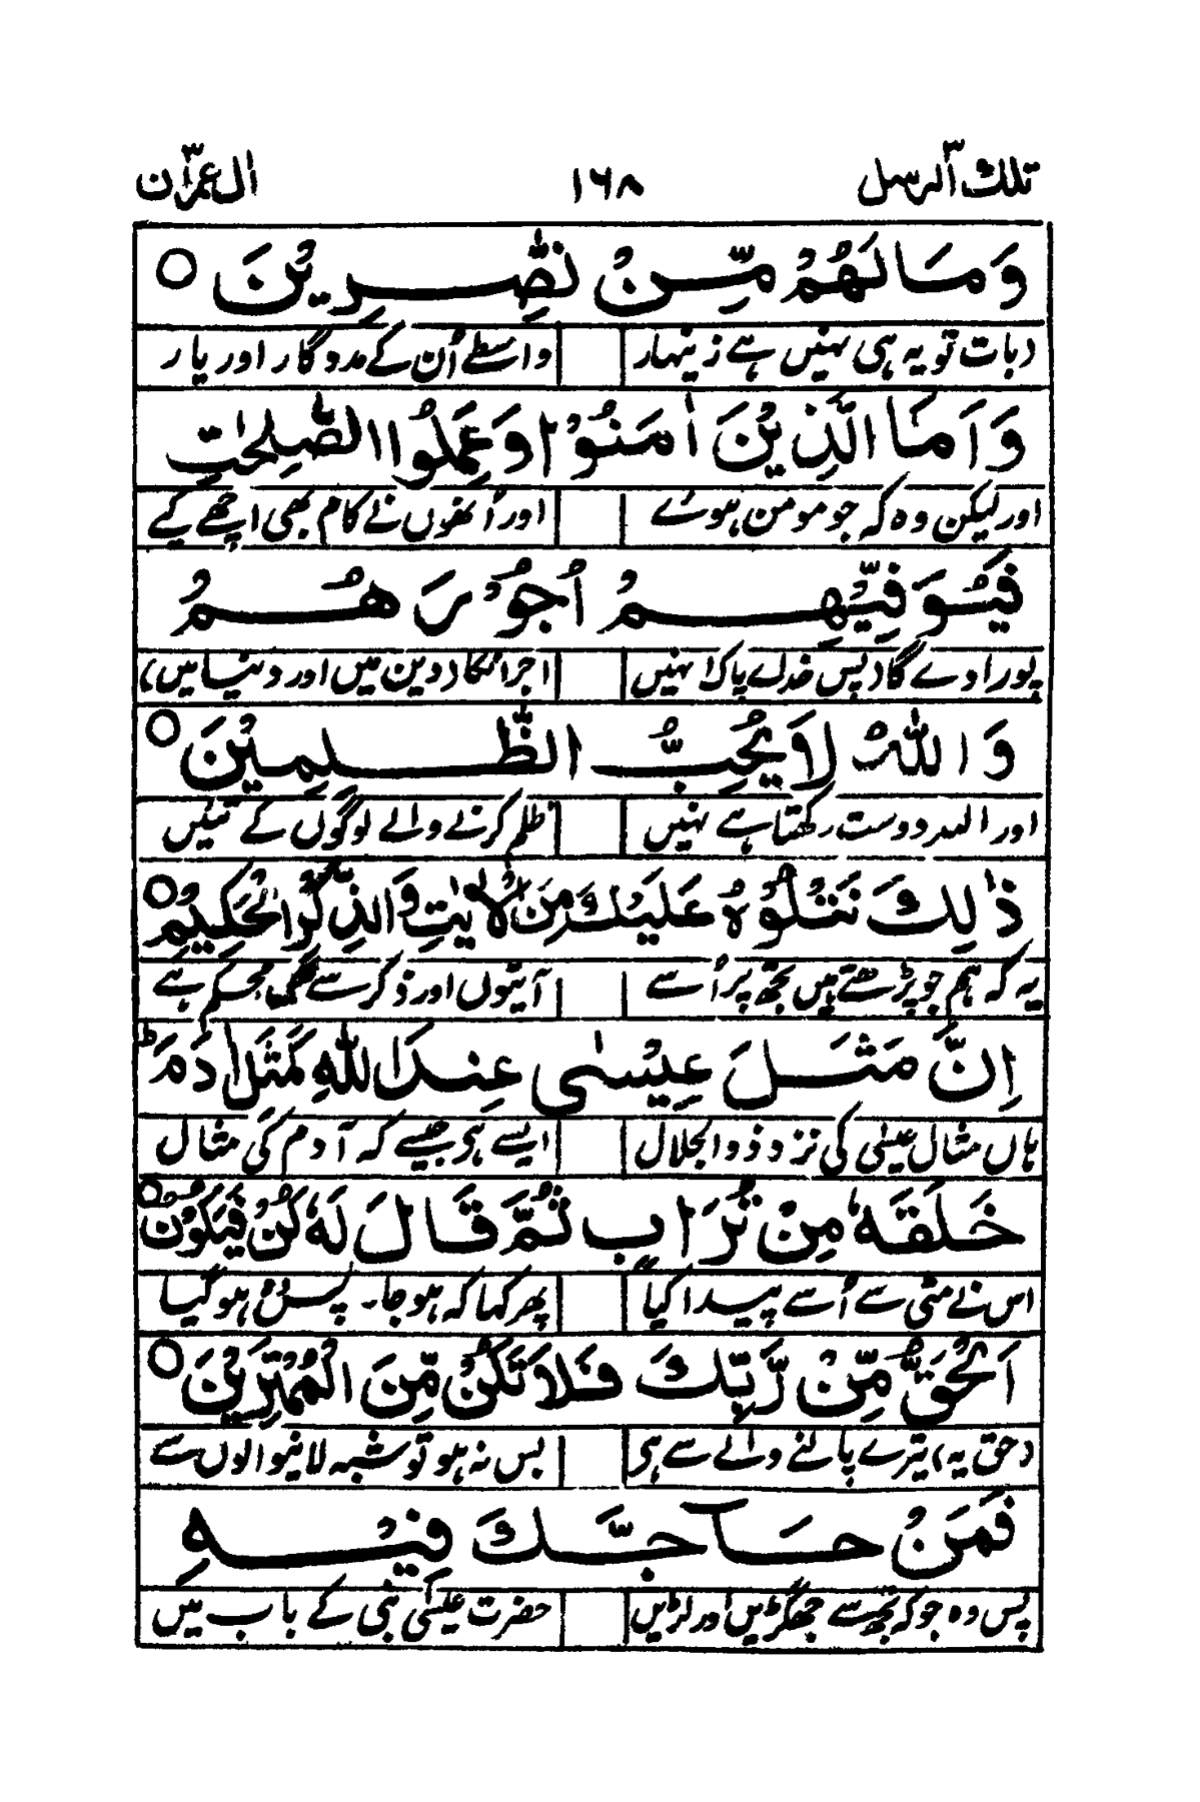 تلك الرسل ٣ ١٦٨ اٰل عمرٰن ٣
وَمَا لَهُمْ مِّنْ نّٰصِرِيْنَ ○
(بات تو یہ ہی نہیں ہے زینہار واسطے اُن کے مددگار اور یار
وَاَمَّا الَّذِيْنَ اٰمَنُوْا وَعَمِلُوا الصّٰلِحٰتِ
اور لیکن وہ کہ جو مومن ہوئے اور اُنھوں نے کام بھی اچھے کیے
فَيُوَفِّيْهِمْ اُجُوْرَهُمْ
پورا دے گا (پس خدائے پاک) انہیں اجر انکا (دین میں اور دنیا میں)
وَاللّٰهُ لَا يُحِبُّ الظّٰلِمِيْنَ ○
اور اللہ دوست رکھتا ہے نہیں ظلم کرنے والے لوگوں کے تئیں
ذٰلِكَ نَتْلُوْهُ عَلَيْكَ مِنَ الْاٰيٰتِ وَالذِّكْرِ الْحَكِيْمِ ○
یہ کہ ہم جو پڑھتے ہیں تجھ پر اُسے آیتوں اور ذکر سے محکم ہے
اِنَّ مَثَلَ عِيْسٰى عِنْدَ اللّٰهِ كَمَثَلِ اٰدَمَ ؕ
ہاں مثال عیسٰی کی نزد ذوالجلال ایسے ہی جیسے کہ آدم کی مثال
خَلَقَهٗ مِنْ تُرَابٍ ثُمَّ قَالَ لَهٗ كُنْ فَيَكُوْنُ ○
اس نے مٹی سے اُسے پیدا کیا پھر کہا کہ ہو جا۔ پس وہ ہو گیا
اَلْحَقُّ مِنْ رَّبِّكَ فَلَا تَكُنْ مِّنَ الْمُمْتَرِيْنَ ○
(حق یہ) تیرے پالنے والے سے ہی بس نہ ہو تو شبہ لانیوالوں سے
فَمَنْ حَآجَّكَ فِيْهِ
پس وہ جو کہ تجھ سے جھگڑیں اور لڑیں حضرت عیسٰی نبی کے باب میں